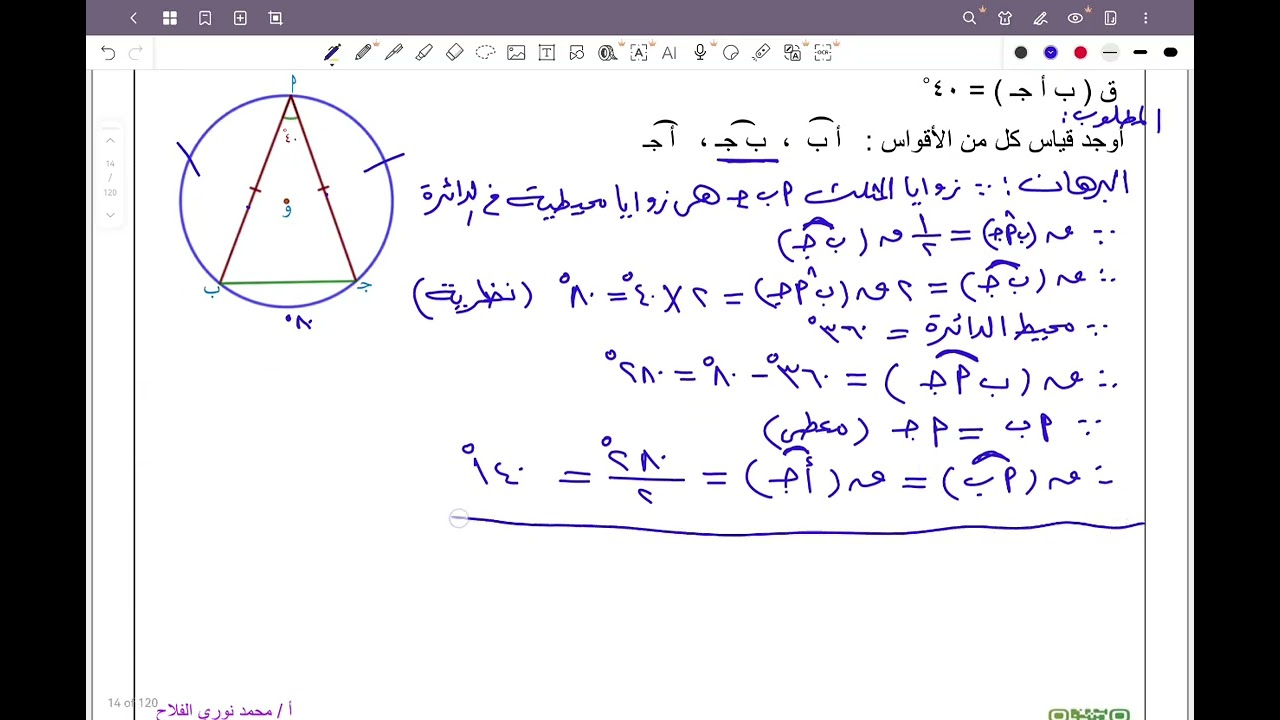 ق ( ب أ جـ ) = ٤٠°
المطلوب :
أوجد قياس كل من الأقواس : أ ب ، ب جـ ، أ جـ
البرهان : ∵ زوايا المثلث م ب جـ هي زوايا محيطية في الدائرة
∵ ق (ب م جـ) = ١/٢ ق (ب جـ)
∴ ق (ب جـ) = ٢ ق (ب م جـ) = ٢ × ٤٠° = ٨٠° (نظرية)
∵ محيط الدائرة = ٣٦٠°
∴ ق (ب م جـ) = ٣٦٠° - ٨٠° = ٢٨٠°
∵ م ب = م جـ (معطى)
∴ ق (م ب) = ق (أ جـ) = ٢٨٠°/٢ = ١٤٠°
م
٤٠°
و
ب
جـ
٨٠°
14
/
120
14 of 120
أ / محمد نوري الفلاح
AI
A
OCR